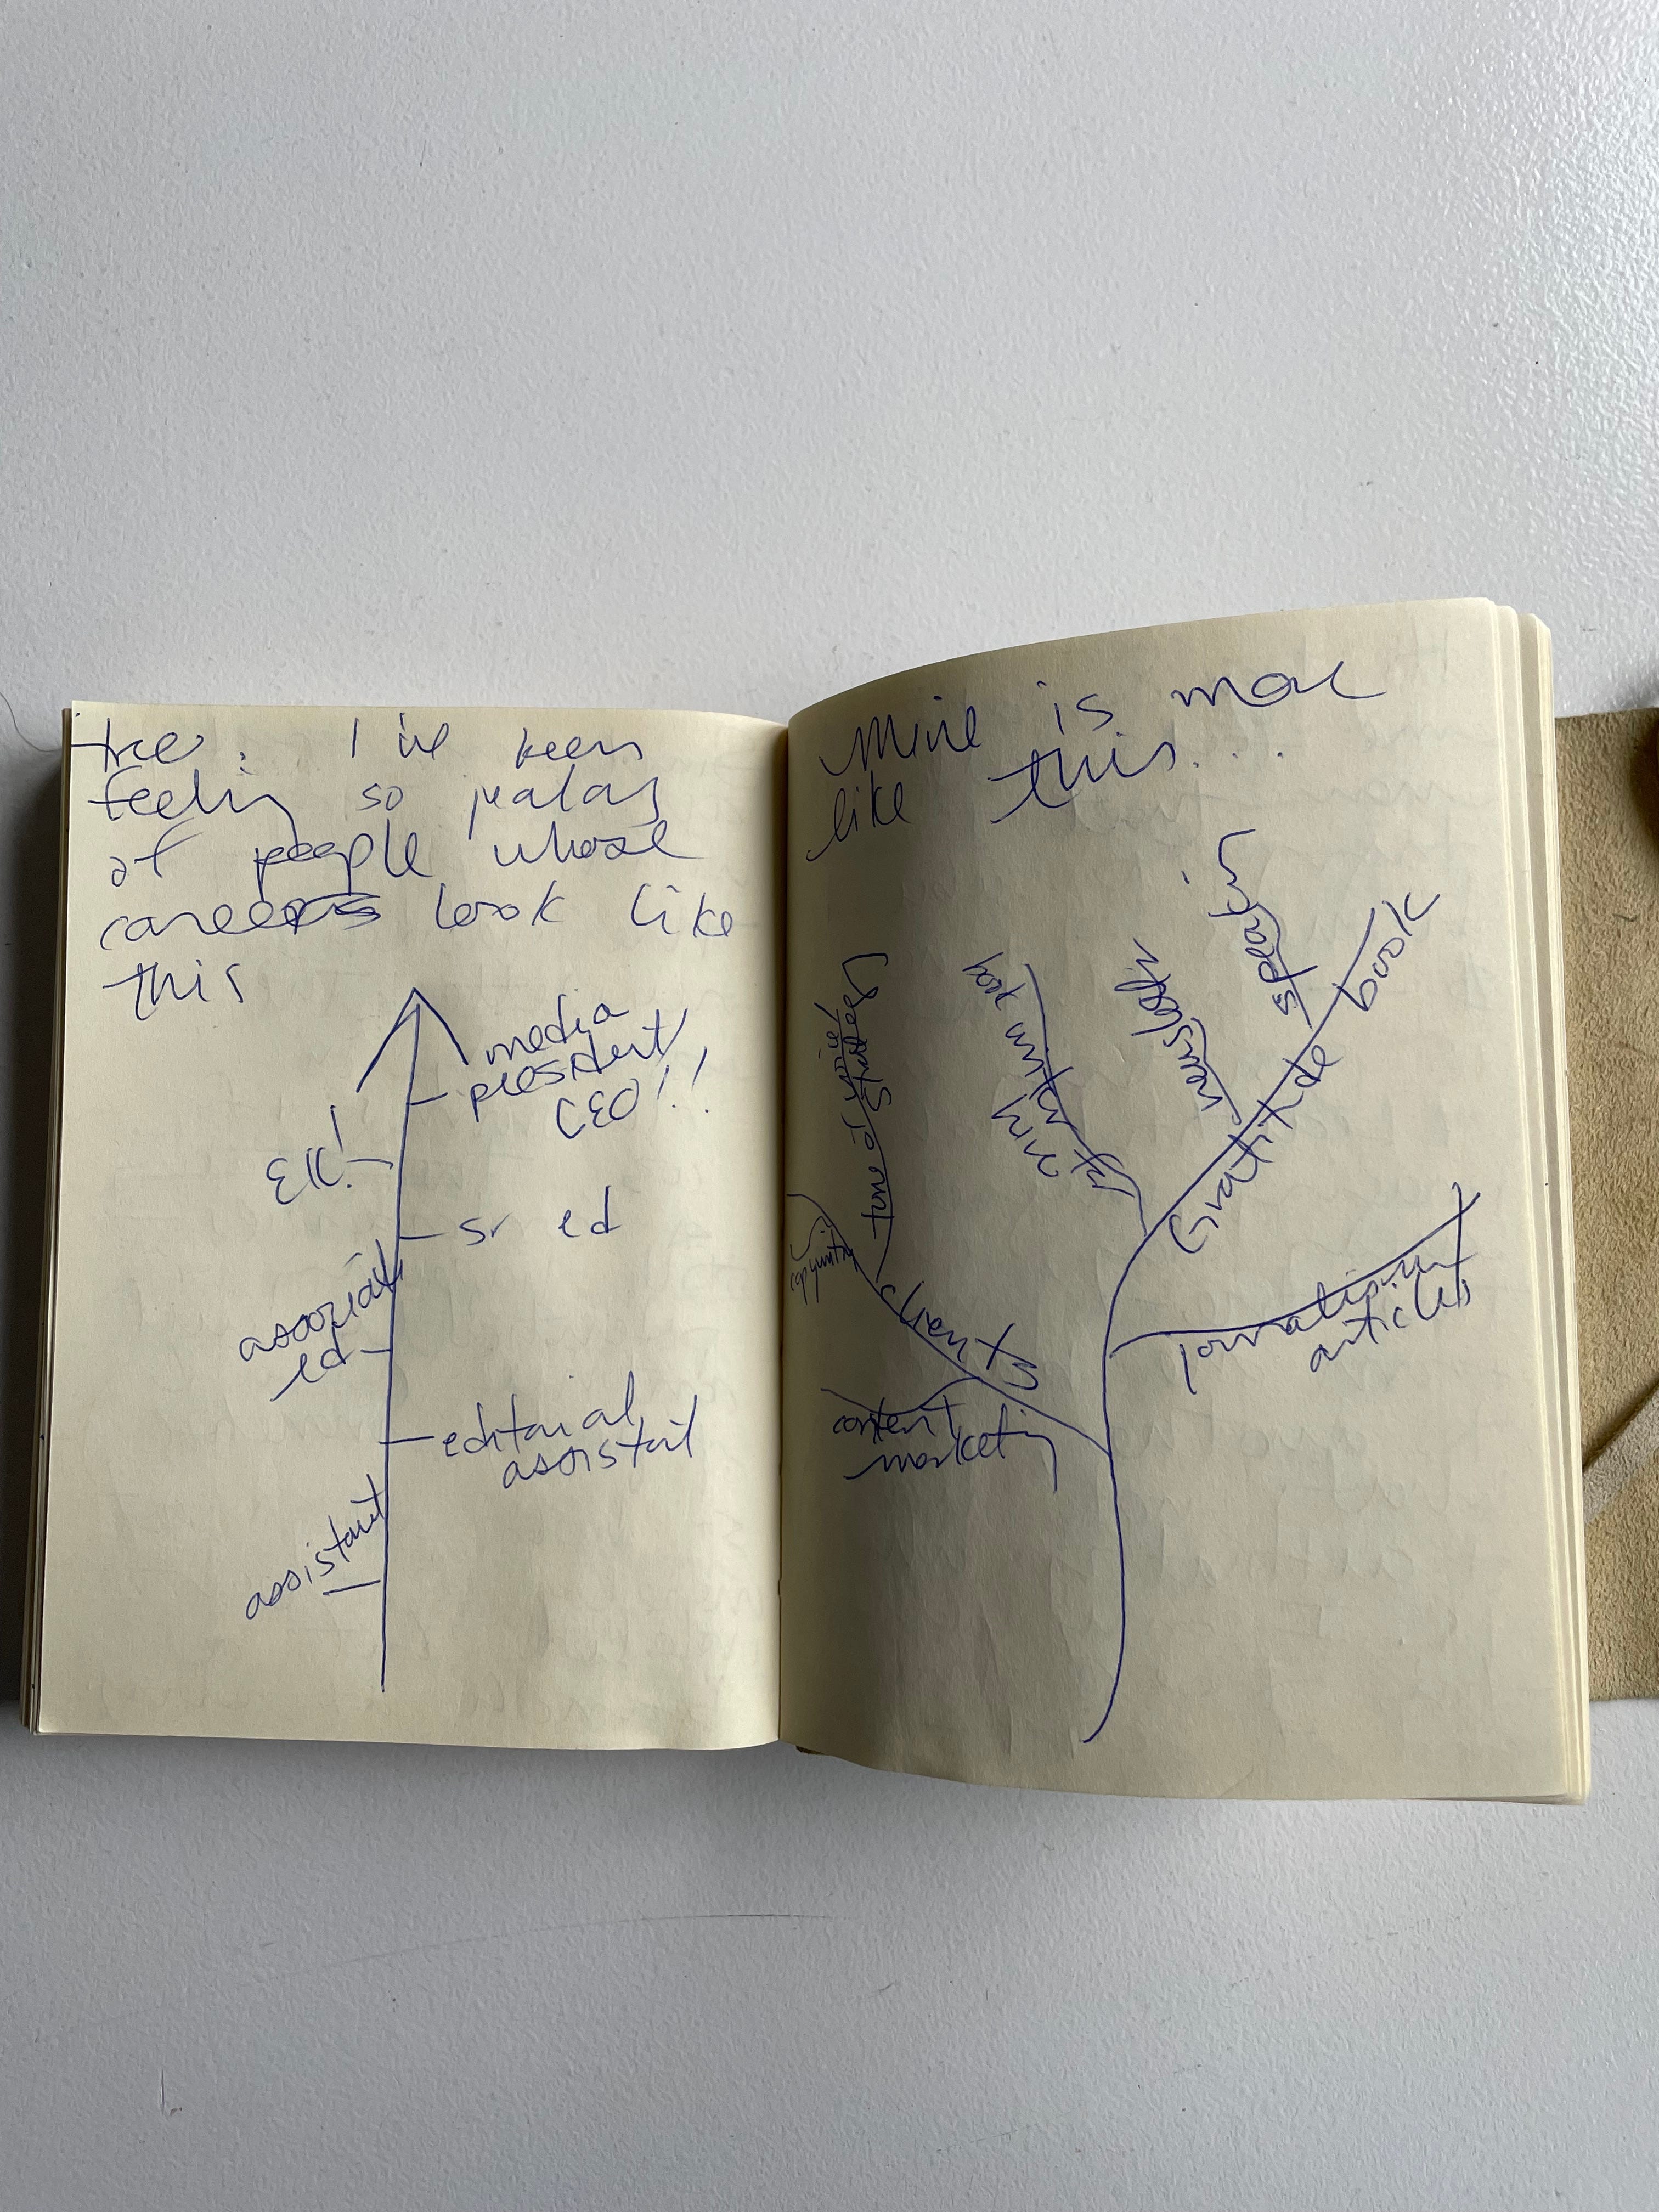 tree. I've been
feeling so jealous
of people whose
careers look like
this
media
president/
CEO!!
EIC!
sr ed
associate
ed
editorial
assistant
assistant
Mine is more
like this...
speaking
book
newsletter
Gratitude
my
tone of voice/
strategy
copywriting
UX
content
marketing
journalism
articles